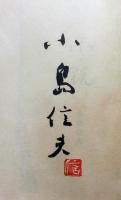 小島信夫
信